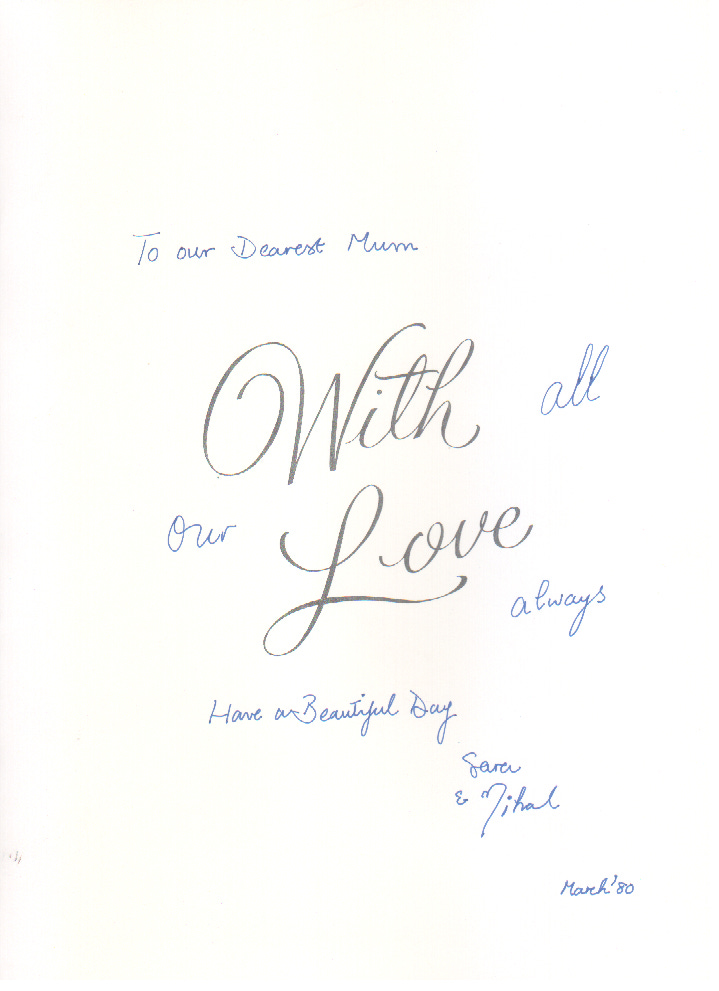 To our Dearest Mum
With all
Our Love
always
Have a Beautiful Day
Sara
& Nihal
March '80